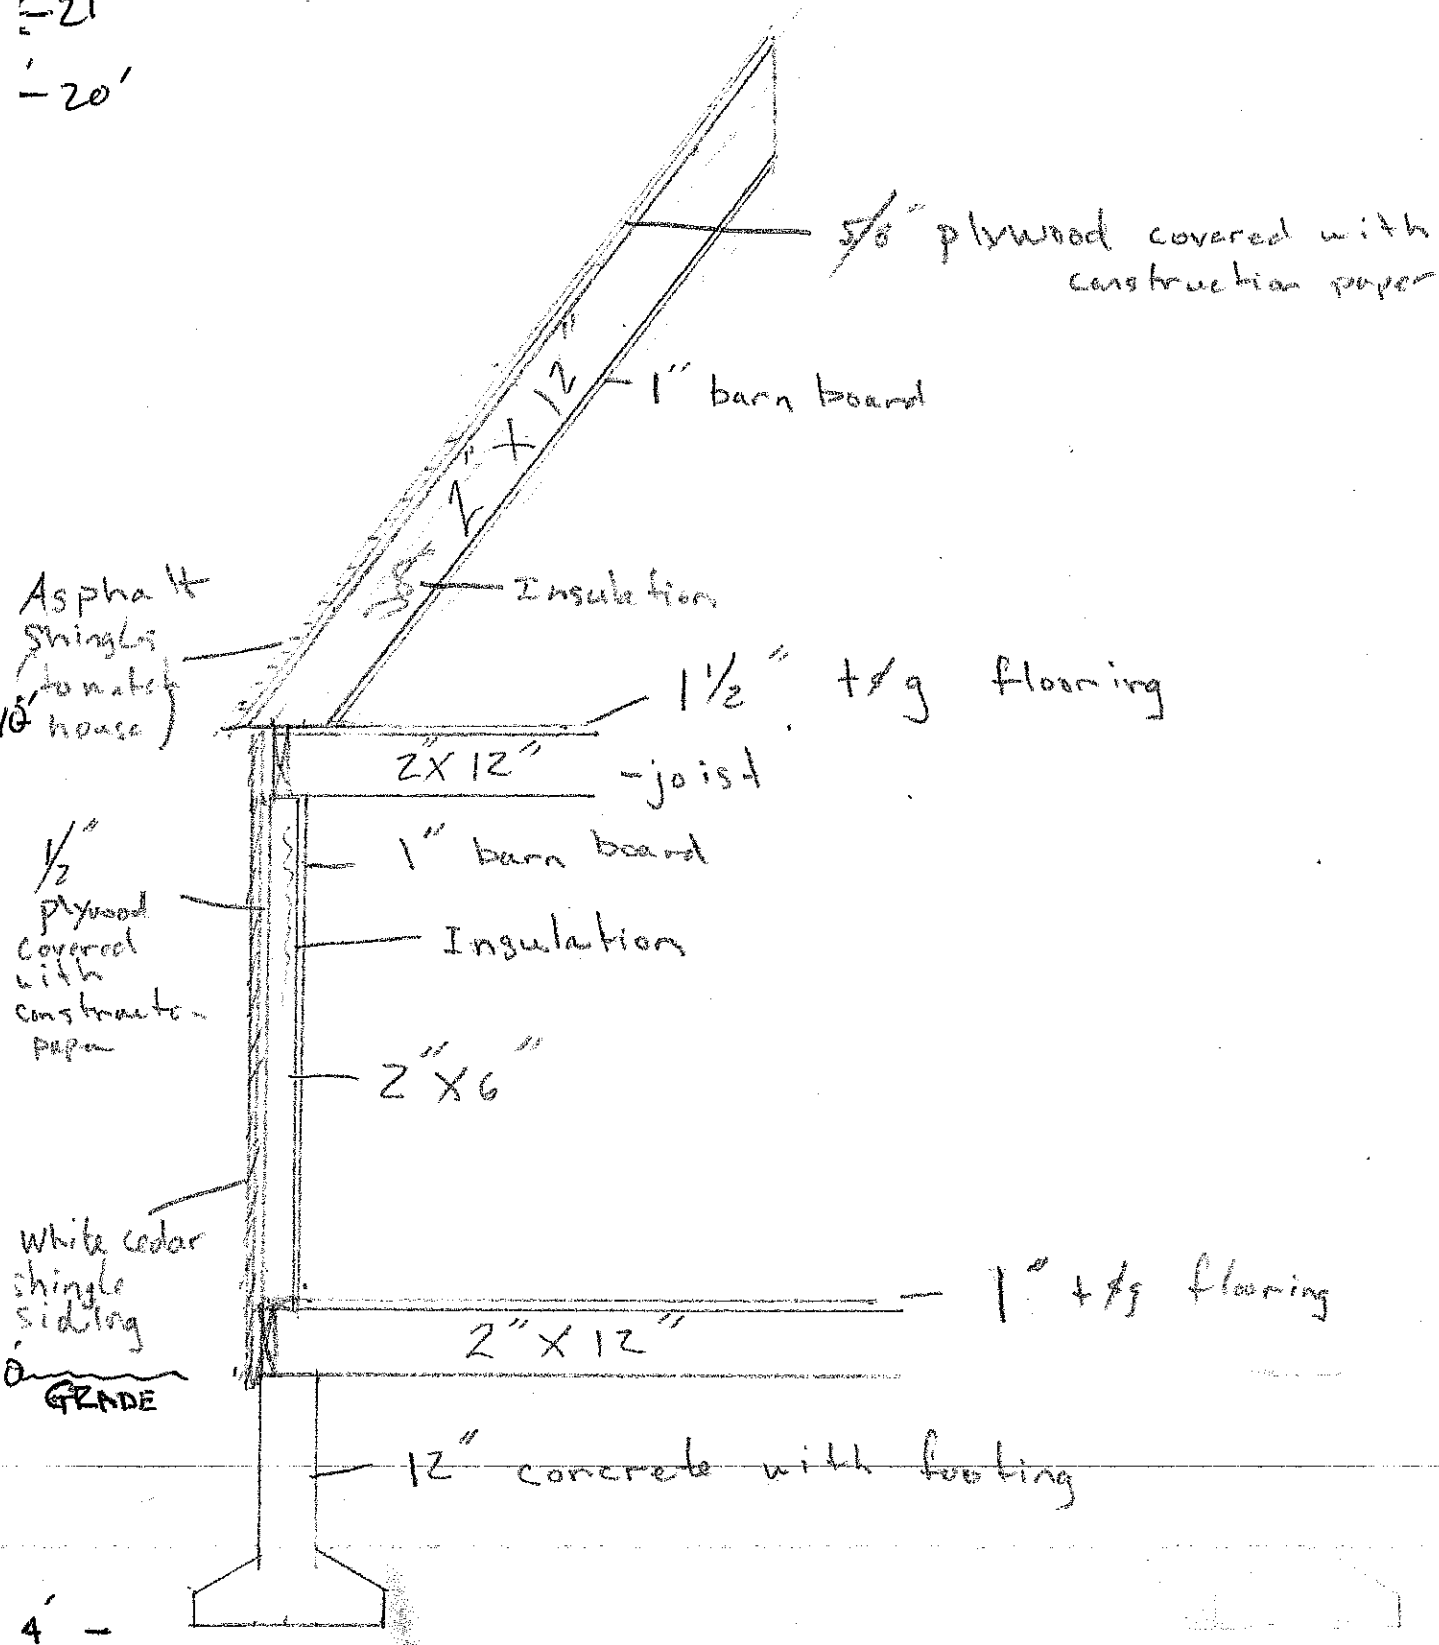 -21'
-20'
5/8" plywood covered with
construction paper
1" barn board
2" x 12"
Insulation
Asphalt
shingles
to match
house)
10'
1 1/2" t&g flooring
2" X 12"
-joist
1" barn board
1/2"
plywood
covered
with
Insulation
2" X 6"
White cedar
shingle
siding
1" t&g flooring
2" X 12"
0'
GRADE
12" concrete with footing
4' -